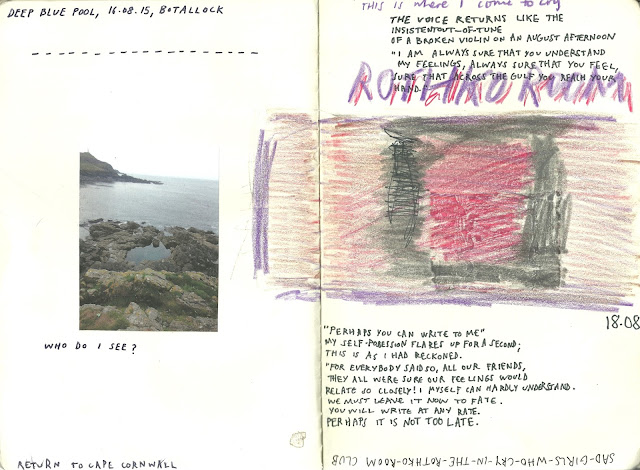 DEEP BLUE POOL, 16.08.15, BOTALLOCK
WHO DO I SEE?
RETURN TO CAPE CORNWALL
THIS is where I come to cry
THE VOICE RETURNS LIKE THE
INSISTENT OUT-OF-TUNE
OF A BROKEN VIOLIN ON AN AUGUST AFTERNOON
"I AM ALWAYS SURE THAT YOU UNDERSTAND
MY FEELINGS, ALWAYS SURE THAT YOU FEEL,
SURE THAT ACROSS THE GULF YOU REACH YOUR
HAND.
ROTHKO ROOM
18.08
"PERHAPS YOU CAN WRITE TO ME"
MY SELF-POSESSION FLARES UP FOR A SECOND;
THIS IS AS I HAD RECKONED.
"FOR EVERYBODY SAID SO, ALL OUR FRIENDS,
THEY ALL WERE SURE OUR FEELINGS WOULD
RELATE SO CLOSELY! I MYSELF CAN HARDLY UNDERSTAND.
WE MUST LEAVE IT NOW TO FATE.
YOU WILL WRITE AT ANY RATE.
PERHAPS IT IS NOT TOO LATE.
SAD-GIRLS-WHO-CRY-IN-THE-ROTHKO-ROOM CLUB